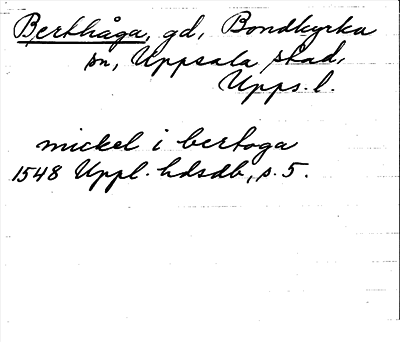 Berthåga, gd, Bondkyrka
sn, Uppsala stad,
Upps. l.
mickel i bertoga
1548 Uppl. hdsdb, s. 5.